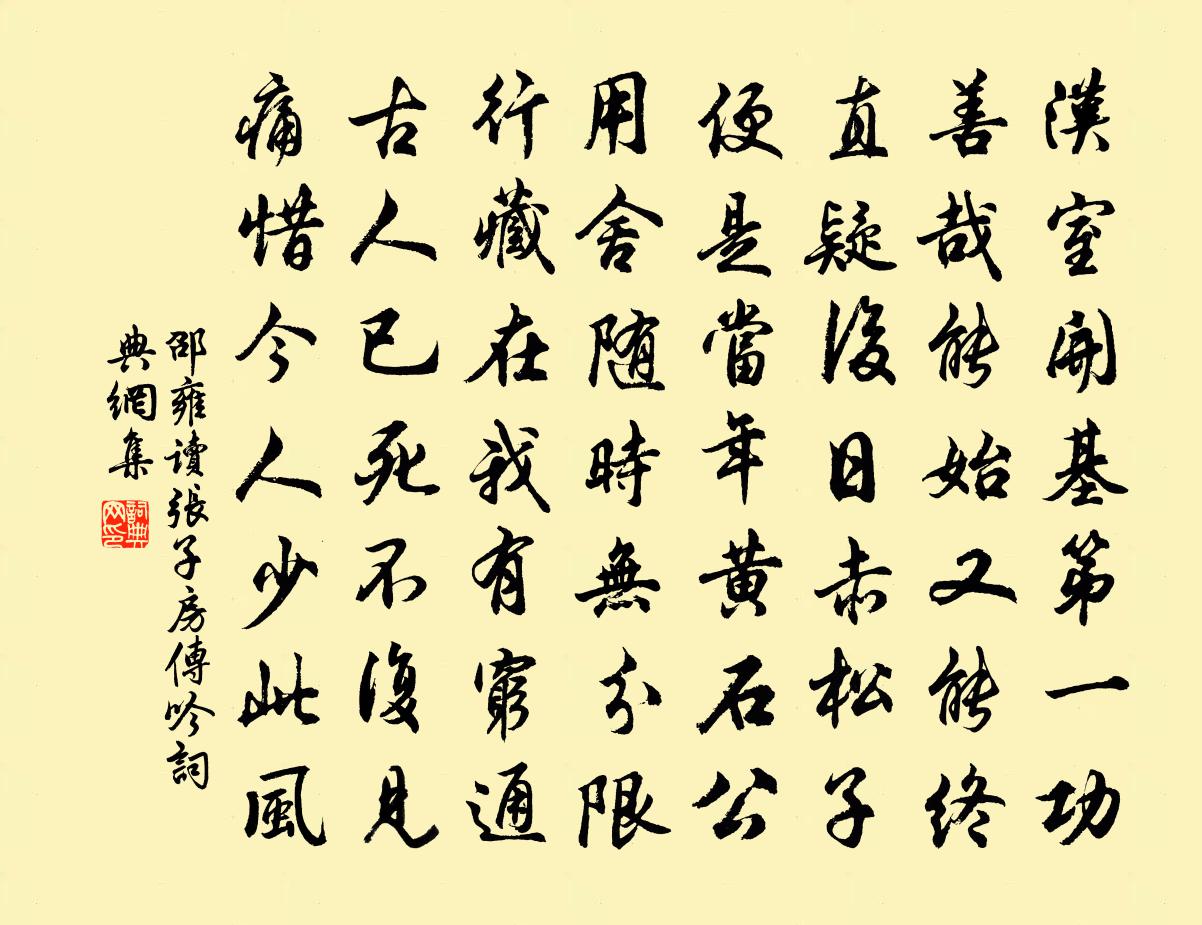 漢室開基第一功
善哉能始又能終
直疑後日赤松子
便是當年黄石公
用舍隨時無分限
行藏在我有窮通
古人已死不復見
痛惜今人少此風
邵雍讀張子房傳吟詞
典網集
詞典
网印